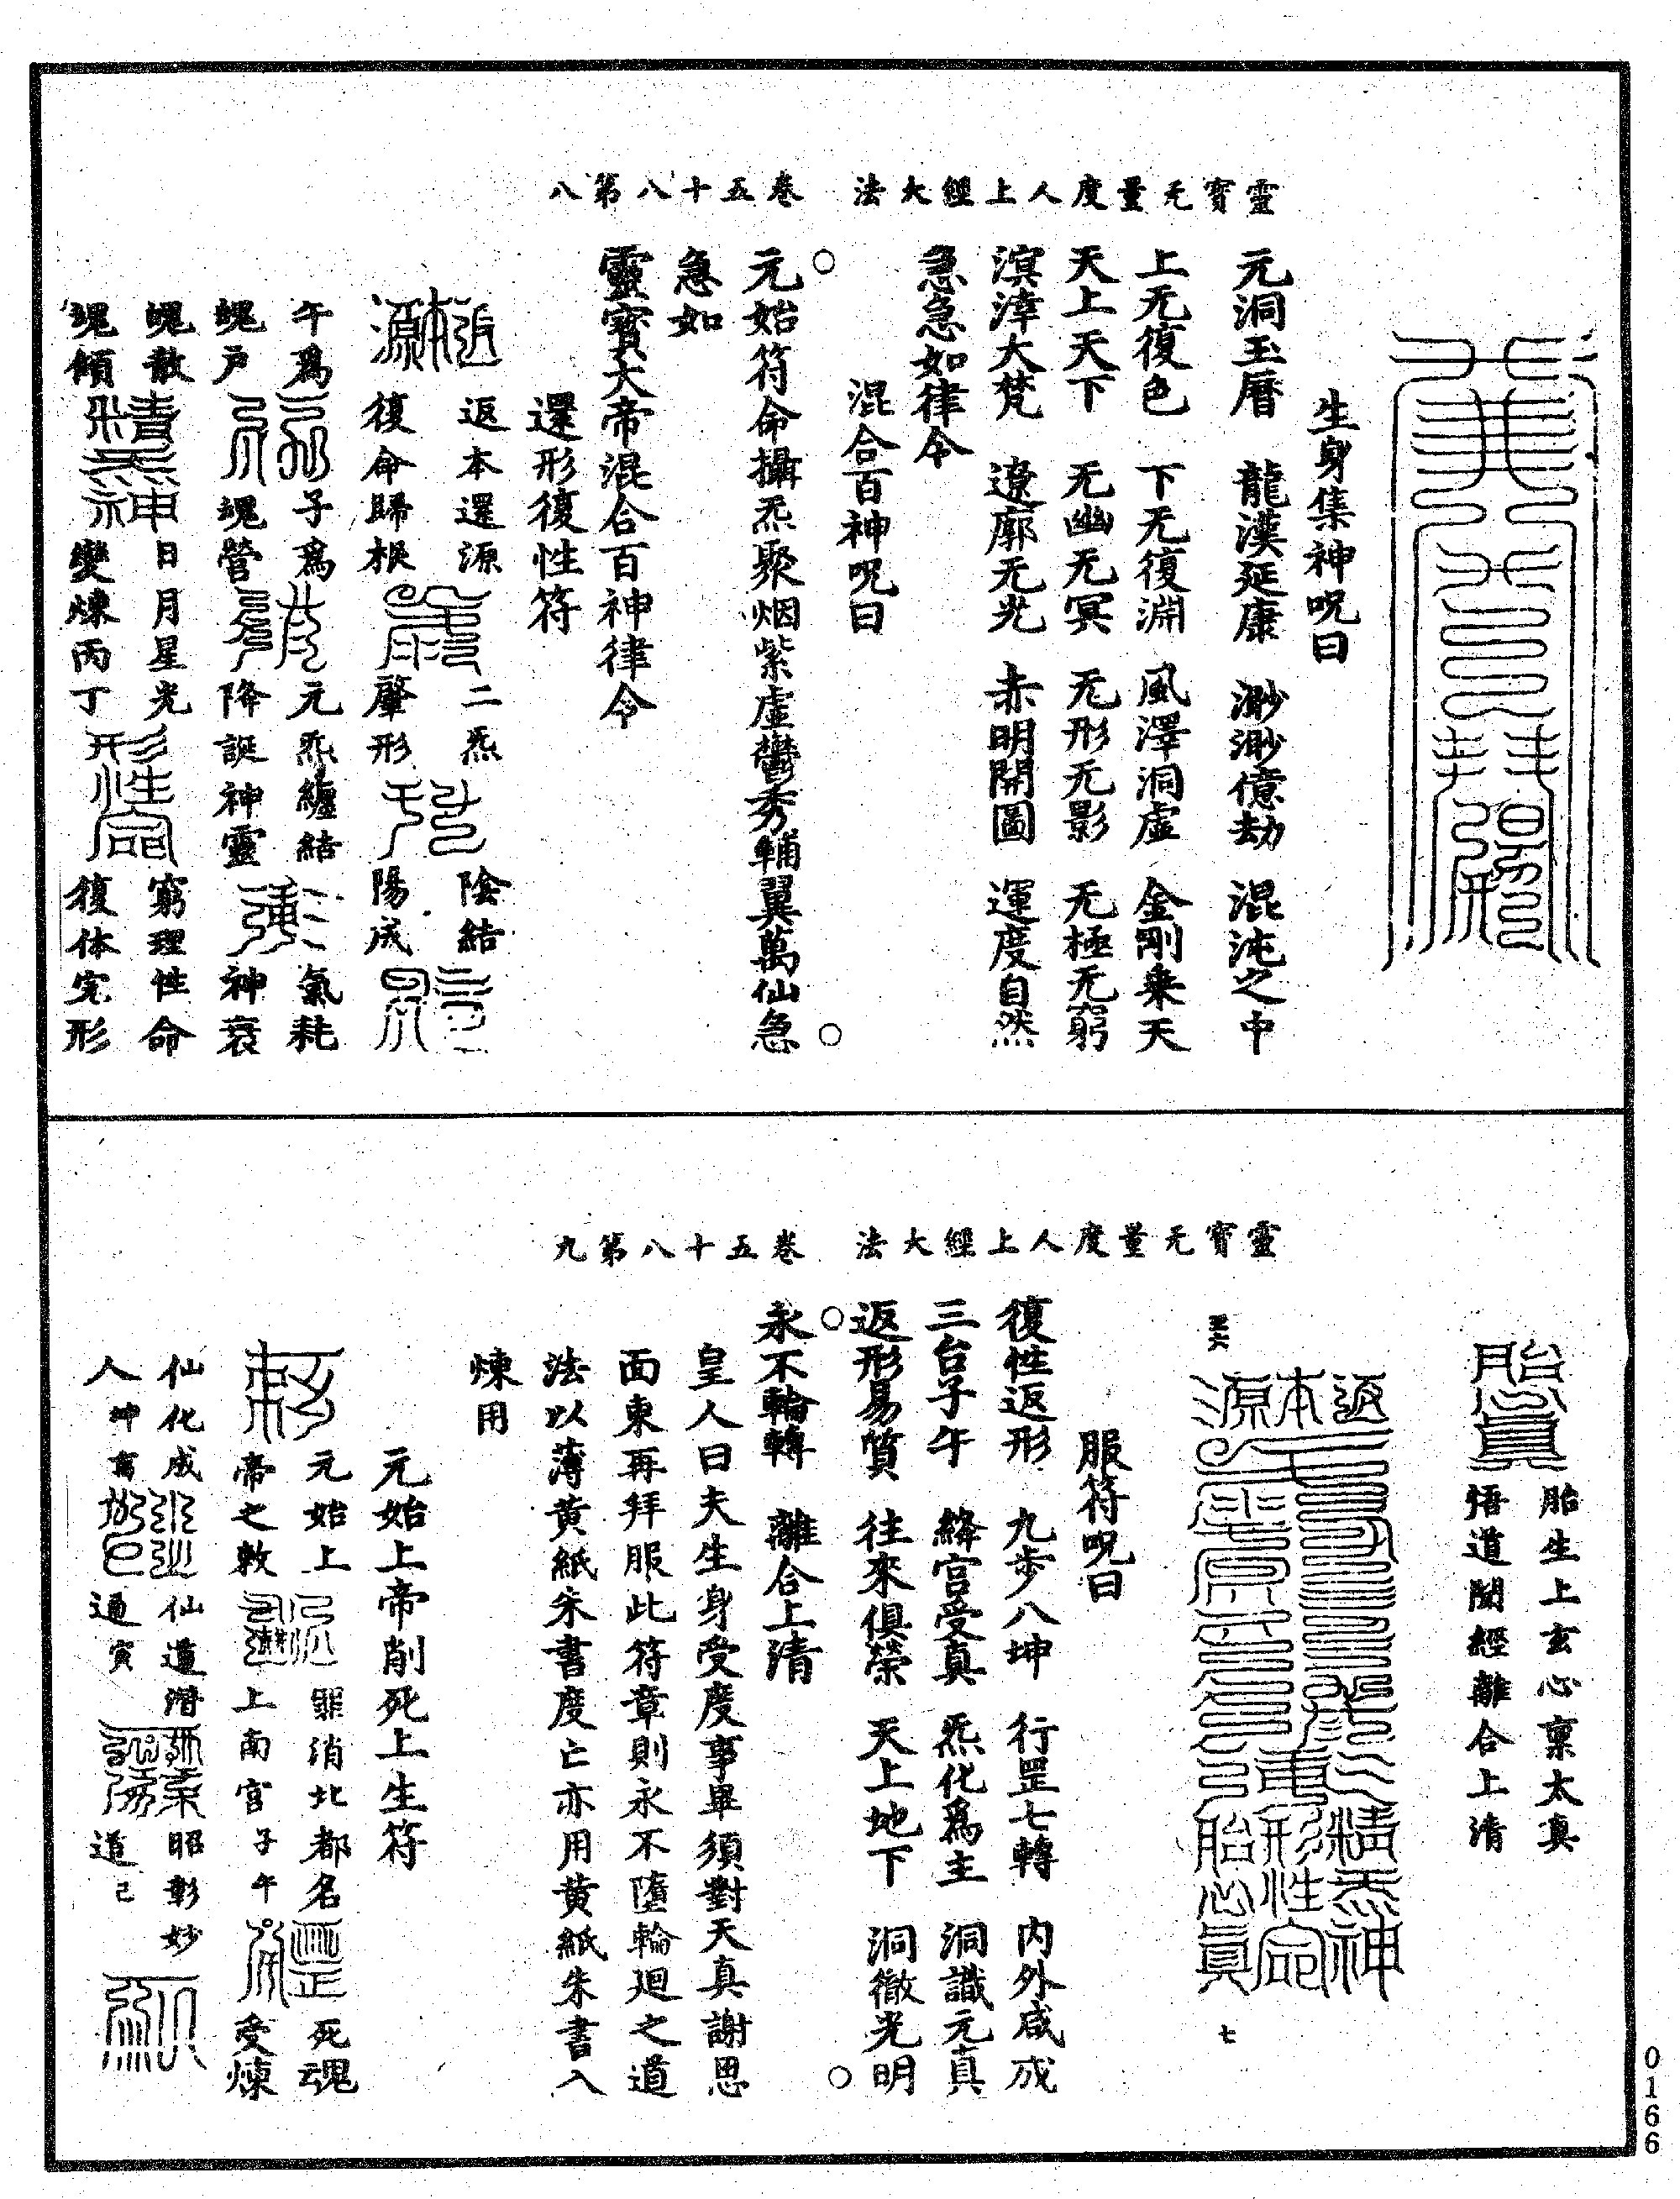 靈寶无量度人上經大法　卷五十八第八
生身集神呪曰
元洞玉曆　龍漢延康　渺渺億劫　混沌之中
上无復色　下无復淵　風澤洞虛　金剛乗天
天上天下　无幽无冥　无形无影　无極无窮
溟涬大梵　遼廓无光　赤明開圖　運度自然
急急如律令
混合百神呪曰
○元始符命攝炁聚烟紫虛鬱秀輔翼萬仙急○
急如
靈寶大帝混合百神律令
還形復性符
返本還源　二炁　陰結
復命歸根　肇形　陽成
午爲　子爲　元炁纏結　氣耗
魂户　魂營　降誕神靈　神衰
魄散　日月星光　窮理性命
魂傾　變煉丙丁　復体完形
靈寶无量度人上經大法　卷五十八第九
胎生上玄心稟太真
悟道聞經離合上清
五六　七
服符呪曰
復性返形　九步八坤　行罡七轉　内外咸成
三台子午　絳宮受真　炁化爲主　洞識元真
○返形易質　往來俱榮　天上地下　洞徹光明○
永不輪轉　離合上清
皇人曰夫生身受度事畢須對天真謝恩
面東再拜服此符章則永不墮輪廻之道
法以薄黄紙朱書度亡亦用黄紙朱書入
煉用
元始上帝削死上生符
元始上　罪消北都名　死魂
帝之敕　上南宮子午　受煉
仙化成　仙道潛　昭彰妙
人　通寅　道己
0166